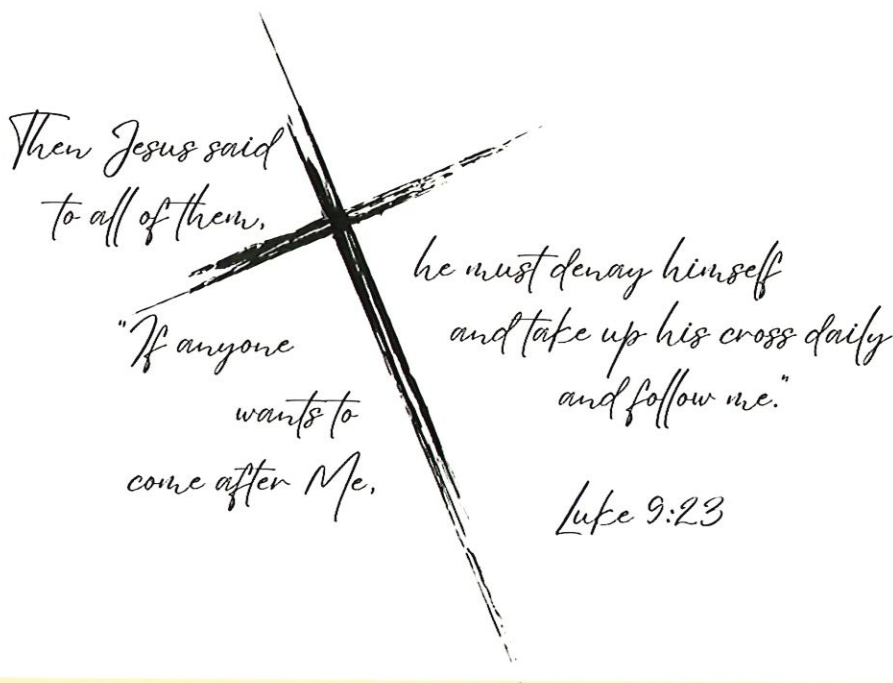 Then Jesus said
to all of them,
"If anyone
wants to
come after Me,
he must denay himself
and take up his cross daily
and follow me."
Luke 9:23